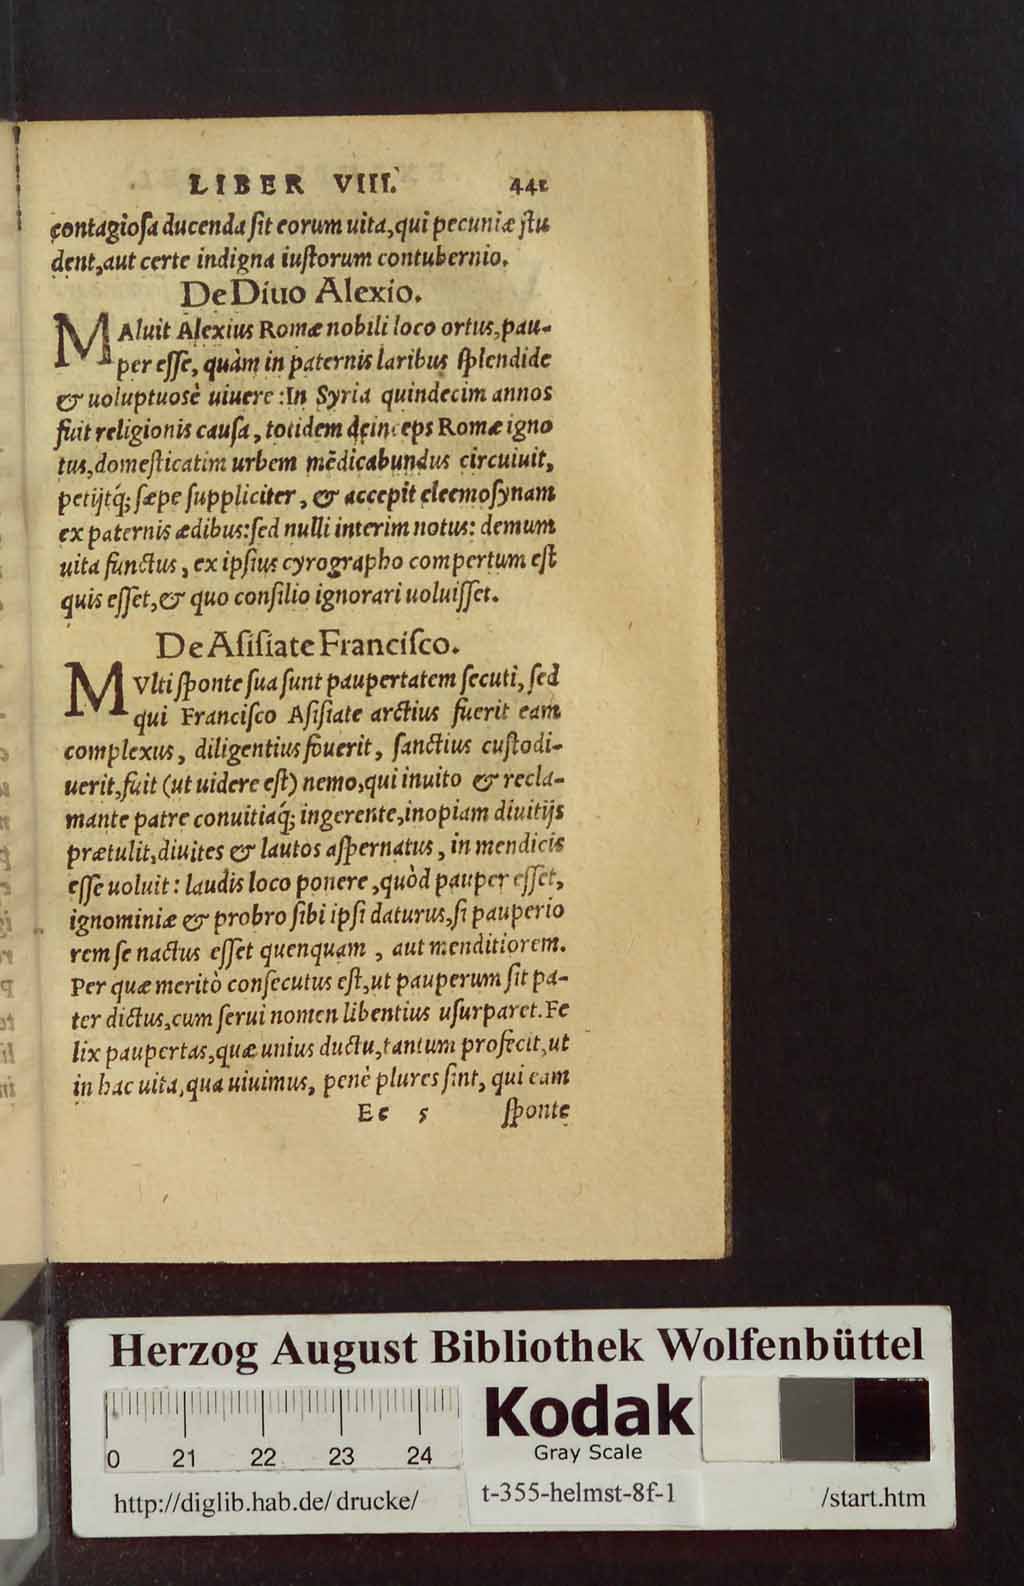 LIBER VIII. 441
contagiosa ducenda sit eorum uita, qui pecuniæ stu
dent, aut certe indigna iustorum contubernio.
De Diuo Alexio.
MAluit Alexius Romæ nobili loco ortus, pau-
per esse, quàm in paternis laribus splendide
& uoluptuosè uiuere: In Syria quindecim annos
fuit religionis causa, totidem deinceps Romæ igno
tus, domesticatim urbem mẽdicabundus circuiuit,
petijtq́; sæpe suppliciter, & accepit eleemosynam
ex paternis ædibus: sed nulli interim notus: demum
uita functus, ex ipsius cyrographo compertum est
quis esset, & quo consilio ignorari uoluisset.
De Asisiate Francisco.
MVlti sponte sua sunt paupertatem secuti, sed
qui Francisco Asisiate arctius fuerit eam
complexus, diligentius fouerit, sanctius custodi-
uerit, fuit (ut uidere est) nemo, qui inuito & recla-
mante patre conuitiaq́; ingerente, inopiam diuitijs
prætulit, diuites & lautos aspernatus, in mendicis
esse uoluit: laudis loco ponere, quòd pauper esset,
ignominiæ & probro sibi ipsi daturus, si pauperio
rem se nactus esset quenquam, aut menditiorem.
Per quæ meritò consecutus est, ut pauperum sit pa-
ter dictus, cum serui nomen libentius usurparet. Fe
lix paupertas, quæ unius ductu, tantum profecit, ut
in hac uita, qua uiuimus, penè plures sint, qui eam
Ee 5 sponte
Herzog August Bibliothek Wolfenbüttel
Kodak
Gray Scale
0 21 22 23 24
http://diglib.hab.de/drucke/ t-355-helmst-8f-1 /start.htm